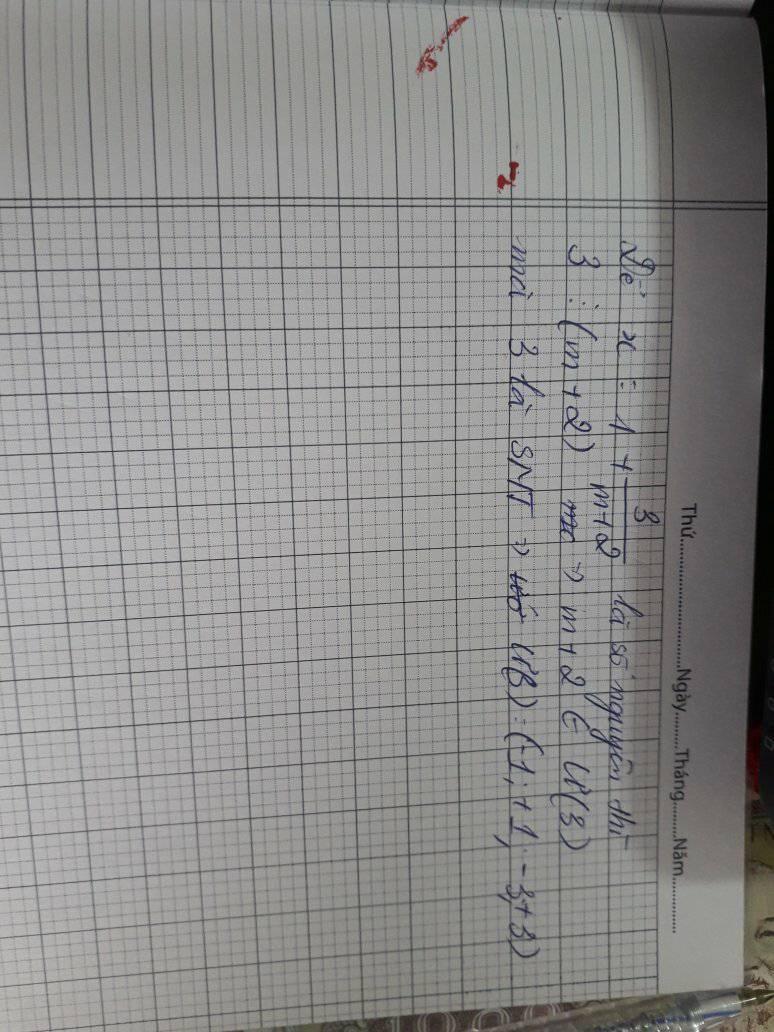 Thứ..............................Ngày.........Tháng.........Năm...............
Để x : 1 + 3/m+2 là số nguyên thì
3 ⋮ (m+2) ⇒ m+2 ∈ Ư(3)
mà 3 là SNT ⇒ Ư(3) = (-1; +1; -3, +3)